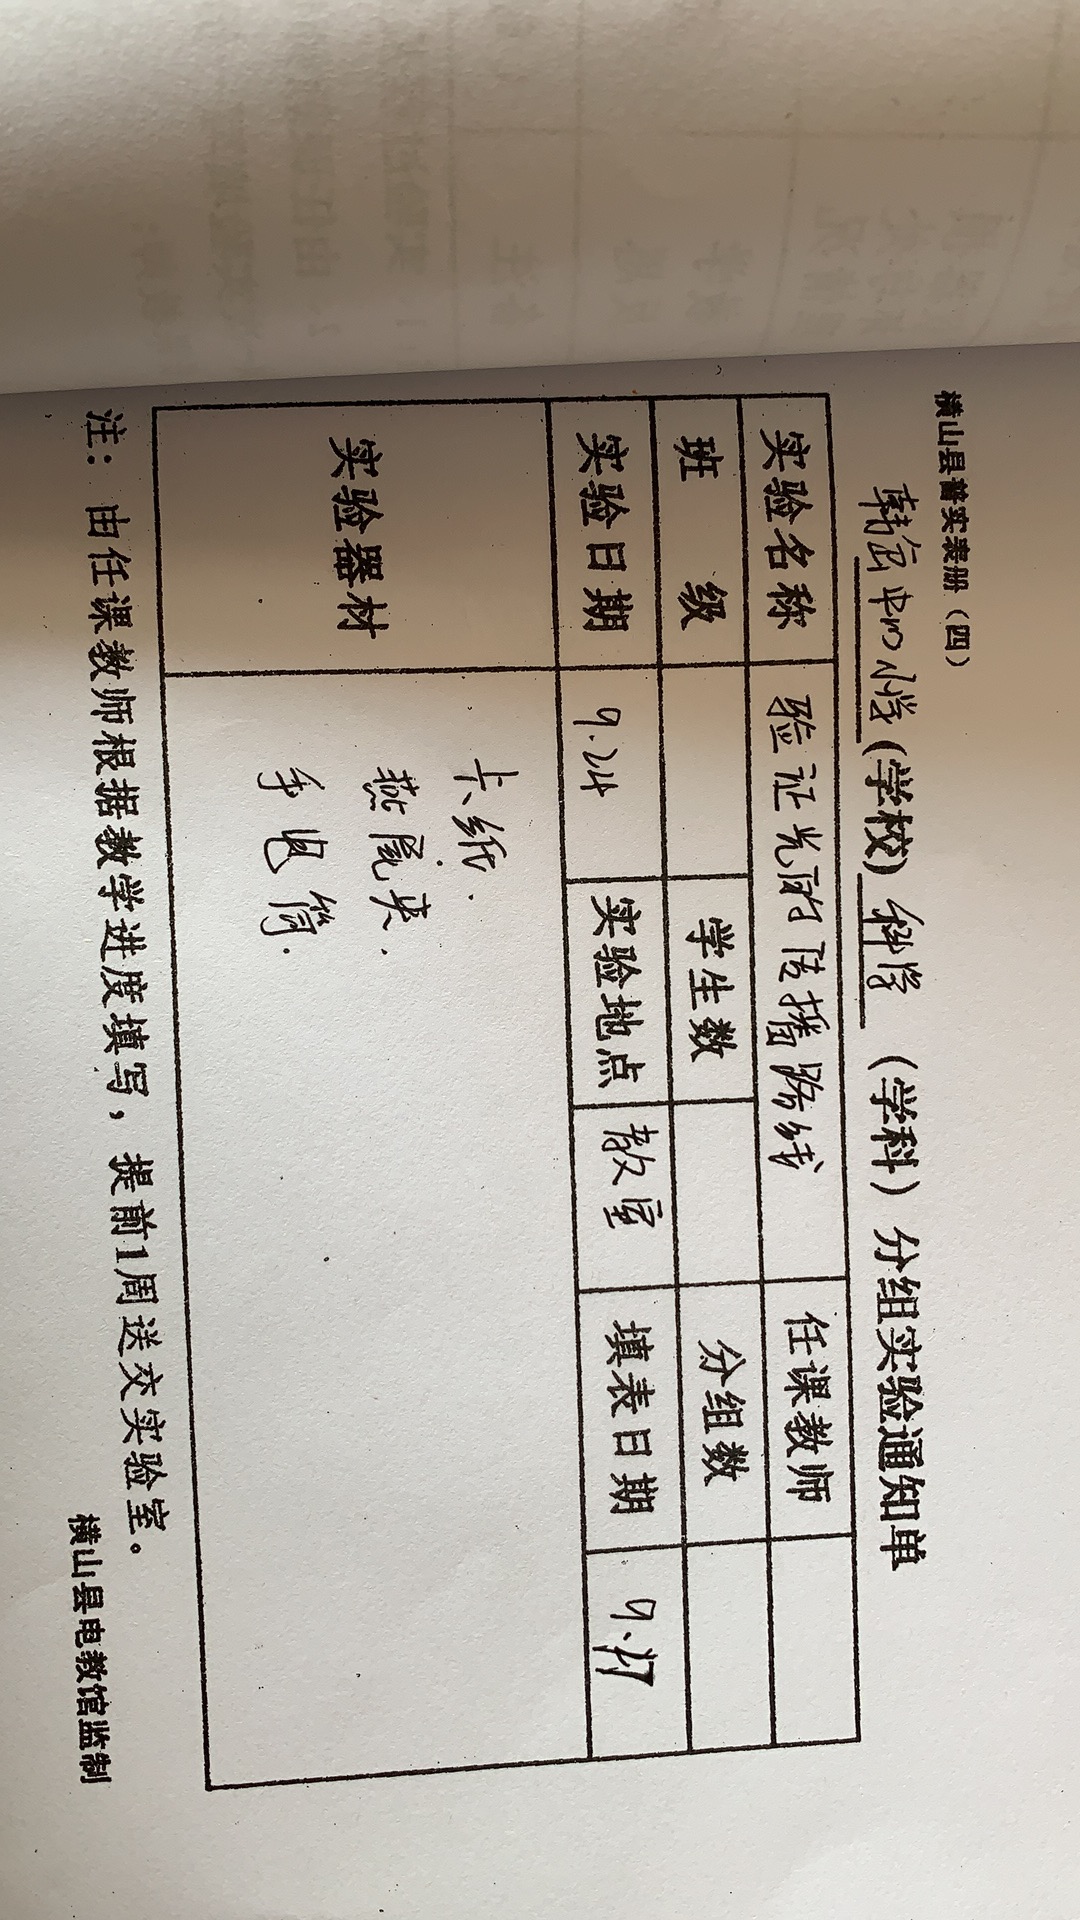 横山县普实表册（四）
韩岔中心小学(学校) 科学 （学科）分组实验通知单
实验名称 验证光的传播路线 任课教师
班 级 学生数 分组数
实验日期 9.24 实验地点 教室 填表日期 9.17
实验器材 卡纸.
燕尾夹.
手电筒.
注：由任课教师根据教学进度填写，提前1周送交实验室。
横山县电教馆监制